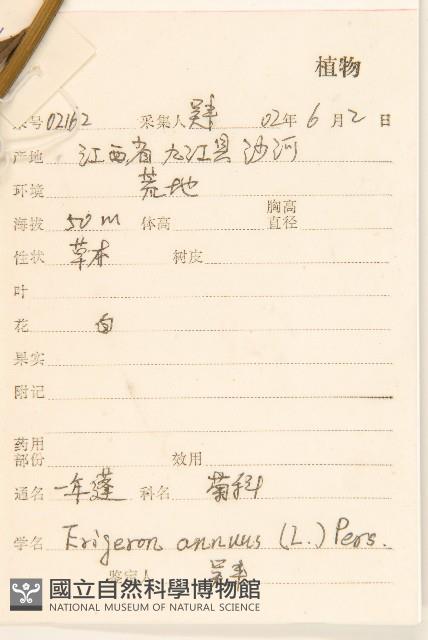 植物
号 02162 采集人 02年 6月 2日
产地 江西省九江县沙河
环境 荒地
海拔 50 m 体高 胸高直径
性状 草本 树皮
叶
花 白
果实
附记
药用部份 效用
通名 一年蓬 科名 菊科
学名 Erigeron annuus (L.) Pers.
鉴定人
國立自然科學博物館
NATIONAL MUSEUM OF NATURAL SCIENCE